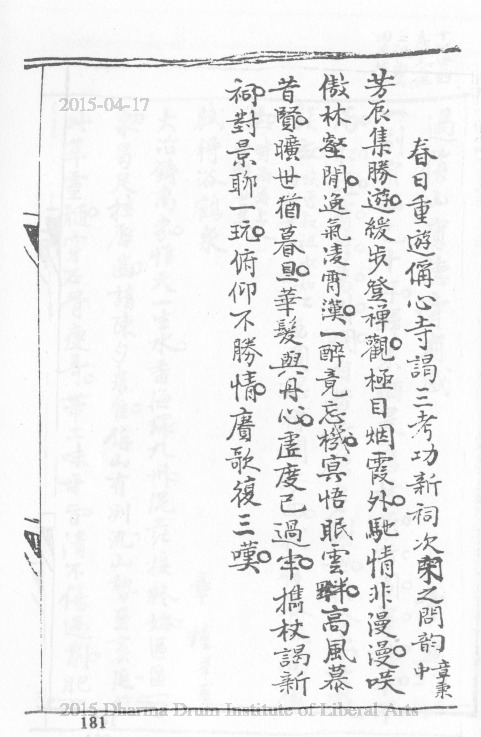 春日重遊偁心寺謁三考功新祠次之問韵中章秉
芳辰集勝遊。緩步登禪觀。極目烟霞外。馳情非漫漫。咲
傲林壑閒。逸氣凌霄漢。一醉竟忘機。冥悟眠雲畔。高風慕
昔賢。曠世猶暮旦。華髮與丹心。虛度已過半。携杖謁新
祠。對景聊一玩。俯仰不勝情。賡歌復三嘆。
2015-04-17
2015 Dharma Drum Institute of Liberal Arts
181